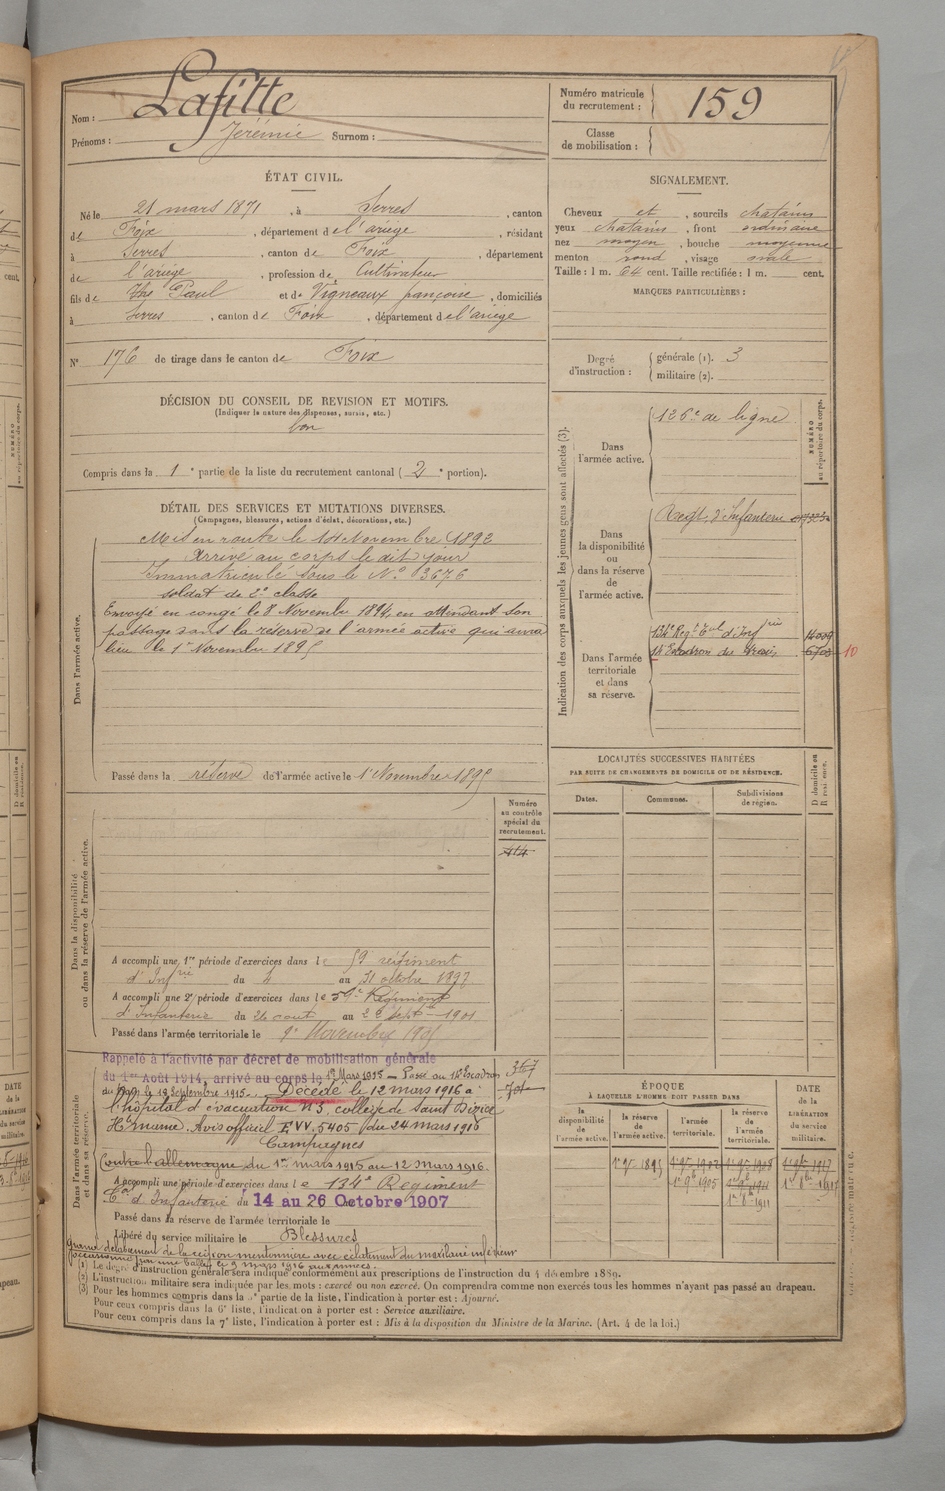 Nom : Lafitte
Prénoms : Jérémie Surnom :
Numéro matricule du recrutement : 159
Classe de mobilisation :
ÉTAT CIVIL.
Né le 21 mars 1871, à Serres, canton
de Foix, département de l'ariège, résidant
à Serres, canton de Foix, département
de l'ariège, profession de Cultivateur
fils de Paul et de Vigneaux françoise, domiciliés
à Serres, canton de Foix, département de l'ariège
N° 176 de tirage dans le canton de Foix
SIGNALEMENT.
Cheveux et, sourcils chatains
yeux chatains, front ordinaire
nez moyen, bouche moyenne
menton rond, visage ovale
Taille : 1 m. 64 cent. Taille rectifiée : 1 m. cent.
MARQUES PARTICULIÈRES :
Degré d'instruction : générale (1). 3
militaire (2).
DÉCISION DU CONSEIL DE REVISION ET MOTIFS.
(Indiquer la nature des dispenses, sursis, etc.)
bon
Compris dans la 1e partie de la liste du recrutement cantonal (2e portion).
DÉTAIL DES SERVICES ET MUTATIONS DIVERSES.
(Campagnes, blessures, actions d'éclat, décorations, etc.)
Dans l'armée active.
Mis en route le 14 Novembre 1892
Arrivé au corps le dit jour
Immatriculé sous le N° 3676
soldat de 2e classe
Envoyé en congé le 8 Novembre 1894, en attendant son
passage dans la réserve de l'armée active qui aura
lieu le 1er Novembre 1895
Passé dans la réserve de l'armée active le 1er Novembre 1895
Indication des corps auxquels les jeunes gens sont affectés (3).
NUMÉRO au répertoire du corps.
Dans l'armée active.
126e de ligne
Dans la disponibilité ou dans la réserve de l'armée active.
Regt d'Infanterie
Dans l'armée territoriale et dans sa réserve.
134e Regt Tal d'Infrie 14009
16 Escadron du train 10
LOCALITÉS SUCCESSIVES HABITÉES
PAR SUITE DE CHANGEMENTS DE DOMICILE OU DE RÉSIDENCE.
Dates. Communes. Subdivisions de région. D domicile ou R résidence.
Dans la disponibilité ou dans la réserve de l'armée active.
Numéro au contrôle spécial du recrutement.
414
A accompli une 1re période d'exercices dans le 59 régiment
d'Infrie du 4 au 31 octobre 1897
A accompli une 2e période d'exercices dans le 59e Régiment
d'Infanterie du 26 aout au 1901
Passé dans l'armée territoriale le Novembre 1905
Dans l'armée territoriale et dans sa réserve.
Rappelé à l'activité par décret de mobilisation générale
du 1er Août 1914, arrivé au corps le 1er Mars 1915 – Passé au 16 Escadron 367
du le 18 Septembre 1915. – Décédé le 12 mars 1916 à
l'hôpital d'évacuation N°3, collège de Saint Dizier
Hte marne. Avis officiel F VV. 5405 du 24 mars 1916
Campagnes
Contre l'allemagne du 1er mars 1915 au 12 Mars 1916.
A accompli une période d'exercices dans le 134e Régiment
Tal d'Infanterie du 14 au 26 Octobre 1907
Passé dans la réserve de l'armée territoriale le
Libéré du service militaire le
Blessures
Grand délabrement de la région mentonnière avec éclatement du maxilaire inférieur
par une balle, le 9 mars 1916
ÉPOQUE
À LAQUELLE L'HOMME DOIT PASSER DANS
DATE de la LIBÉRATION du service militaire.
la disponibilité de l'armée active. la réserve de l'armée active. l'armée territoriale. la réserve de l'armée territoriale.
(1) Le degré d'instruction générale sera indiqué conformément aux prescriptions de l'instruction du 4 décembre 1889.
(2) L'instruction militaire sera indiquée par les mots : exercé ou non exercé. On comprendra comme non exercés tous les hommes n'ayant pas passé au drapeau.
(3) Pour les hommes compris dans la partie de la liste, l'indication à porter est : Ajourné.
Pour ceux compris dans la 6e liste, l'indication à porter est : Service auxiliaire.
Pour ceux compris dans la 7e liste, l'indication à porter est : Mis à la disposition du Ministre de la Marine. (Art. 4 de la loi.)